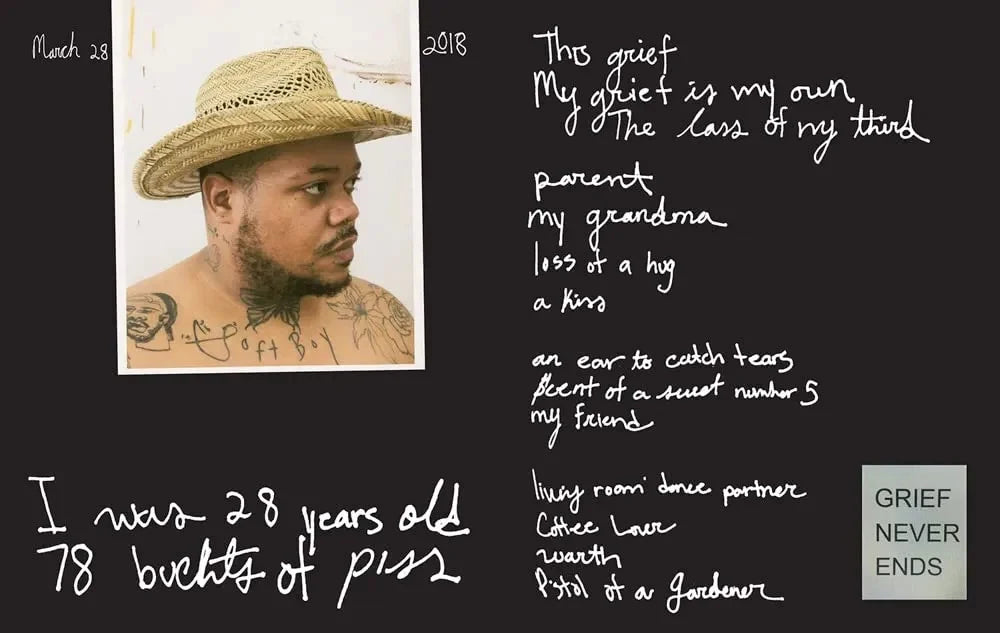 March 28
2018
This grief
My grief is my own
The loss of my third
parent
my grandma
loss of a hug
a kiss
an ear to catch tears
scent of a sweet number 5
my friend
living room dance partner
Coffee Lover
warth
Pistol of a gardener
I was 28 years old
78 buckets of piss
Soft Boy
GRIEF
NEVER
ENDS